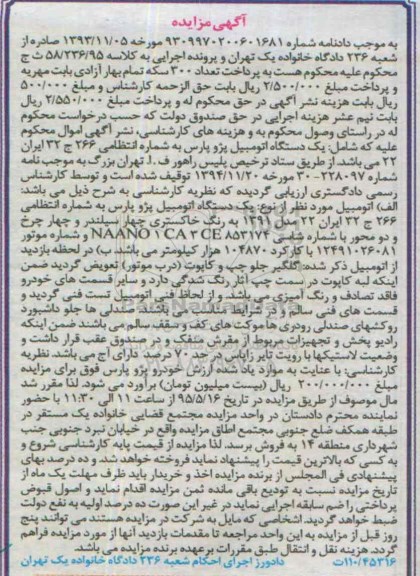 آگهی مزایده
به موجب دادنامه شماره ۹۳۰۹۹۷۰۲۰۰۶۰۱۶۸۱ مورخه ۱۳۹۳/۱۱/۰۵ صادره از
شعبه ۲۳۶ دادگاه خانواده یک تهران و پرونده اجرایی به کلاسه ۵۸/۲۳۶/۹۵ ث ج
محکوم علیه محکوم هست به پرداخت تعداد ۳۰۰ سکه تمام بهار آزادی بابت مهریه
و پرداخت مبلغ ۲/۵۰۰/۰۰۰ ریال بابت حق الزحمه کارشناس و مبلغ ۵۰۰/۰۰۰
ریال بابت هزینه نشر آگهی در حق محکوم له و پرداخت مبلغ ۲/۵۵۰/۰۰۰ ریال
بابت نیم عشر هزینه اجرایی در حق صندوق دولت که حسب درخواست محکوم
له در راستای وصول محکوم به و هزینه های کارشناسی، نشر آگهی اموال محکوم
علیه که شامل: یک دستگاه اتومبیل پژو پارس به شماره انتظامی ۲۶۶ ج ۳۲ ایران
۲۲ می باشد. از طریق ستاد ترخیص پلیس راهور ف.ا. تهران بزرگ به موجب نامه
شماره ۲۲۸۰۹۷-۳۰ مورخه ۱۳۹۴/۱۱/۲۰ توقیف شده است و توسط کارشناس
رسمی دادگستری ارزیابی گردیده که نظریه کارشناسی به شرح ذیل می باشد:
الف) اتومبیل مورد نظر از نوع: یک دستگاه اتومبیل پژو پارس به شماره انتظامی
۲۶۶ ج ۳۲ ایران ۲۲ مدل ۱۳۹۱ به رنگ خاکستری چهار سیلندر و چهار چرخ
و دو محور با شماره شاسی NAAN۰۱CA۳CE۸۵۳۱۷۳ و شماره موتور
۱۲۴۹۱۰۲۶۰۸۱ با کارکرد ۱۰۴۸۷۰ هزار کیلومتر می باشد. ب) در لحظه بازدید
از اتومبیل ذکر شده: گلگیر جلو چپ و کاپوت (درب موتور) تعویض گردید ضمن
اینکه لبه کاپوت در سمت چپ آثار رنگ شدگی دارد و سایر قسمت های خودرو
فاقد تصادف و رنگ آمیزی می باشد. و از لحاظ فنی اتومبیل تست فنی گردید و
قسمت های فنی سالم و در شرایط عادی می باشند. صندلی ها جلو داشبورد
روکشهای صندلی رودری ها موکت های کف و سقف سالم می باشند ضمن اینکه
رادیو پخش و تجهیزات مربوط از مفرش منفک و در صندوق عقب قرار داشت و
وضعیت لاستیکها با رویت تایر زاپاس در حد ۷۰ درصد دارای آج می باشد. نظریه
کارشناسی: با عنایت به موارد یاد شده ارزش خودرو پژو پارس فوق برای مزایده
مبلغ ۲۰۰/۰۰۰/۰۰۰ ریال (بیست میلیون تومان) برآورد می شود. لذا مقرر شد
مال موصوف از طریق مزایده در تاریخ ۹۵/۵/۱۶ از ساعت ۱۱ الی ۱۱:۳۰ با حضور
نماینده محترم دادستان در واحد مزایده مجتمع قضایی خانواده یک مستقر در
طبقه همکف ضلع جنوبی مجتمع اطاق مزایده واقع در خیابان نبرد جنوبی جنب
شهرداری منطقه ۱۴ به فروش برسد. لذا مزایده از قیمت پایه کارشناسی شروع و
به کسی که بالاترین قیمت را پیشنهاد نماید فروخته خواهد شد. و ده درصد بهای
پیشنهادی فی المجلس از برنده مزایده اخذ و خریدار باید ظرف مهلت یک ماه از
تاریخ مزایده نسبت به تودیع باقی مانده ثمن مزایده اقدام نماید و اصول قبوض
پرداختی را ضم سابقه اجرایی نماید در غیر این صورت ده درصد اولیه به نفع دولت
ضبط خواهد گردید. اشخاصی که مایل به شرکت در مزایده هستند می توانند پنج
روز قبل از مزایده به این واحد مراجعه تا مقدمات بازدید آنها از مورد مزایده فراهم
گردد. هزینه نقل و انتقال طبق مقررات بر عهده برنده مزایده می باشد.
۱۱۰/۴۵۳۱۶ت دادورز اجرای احکام شعبه ۲۳۶ دادگاه خانواده یک تهران